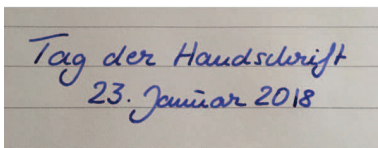 Tag der Handschrift
23. Januar 2018